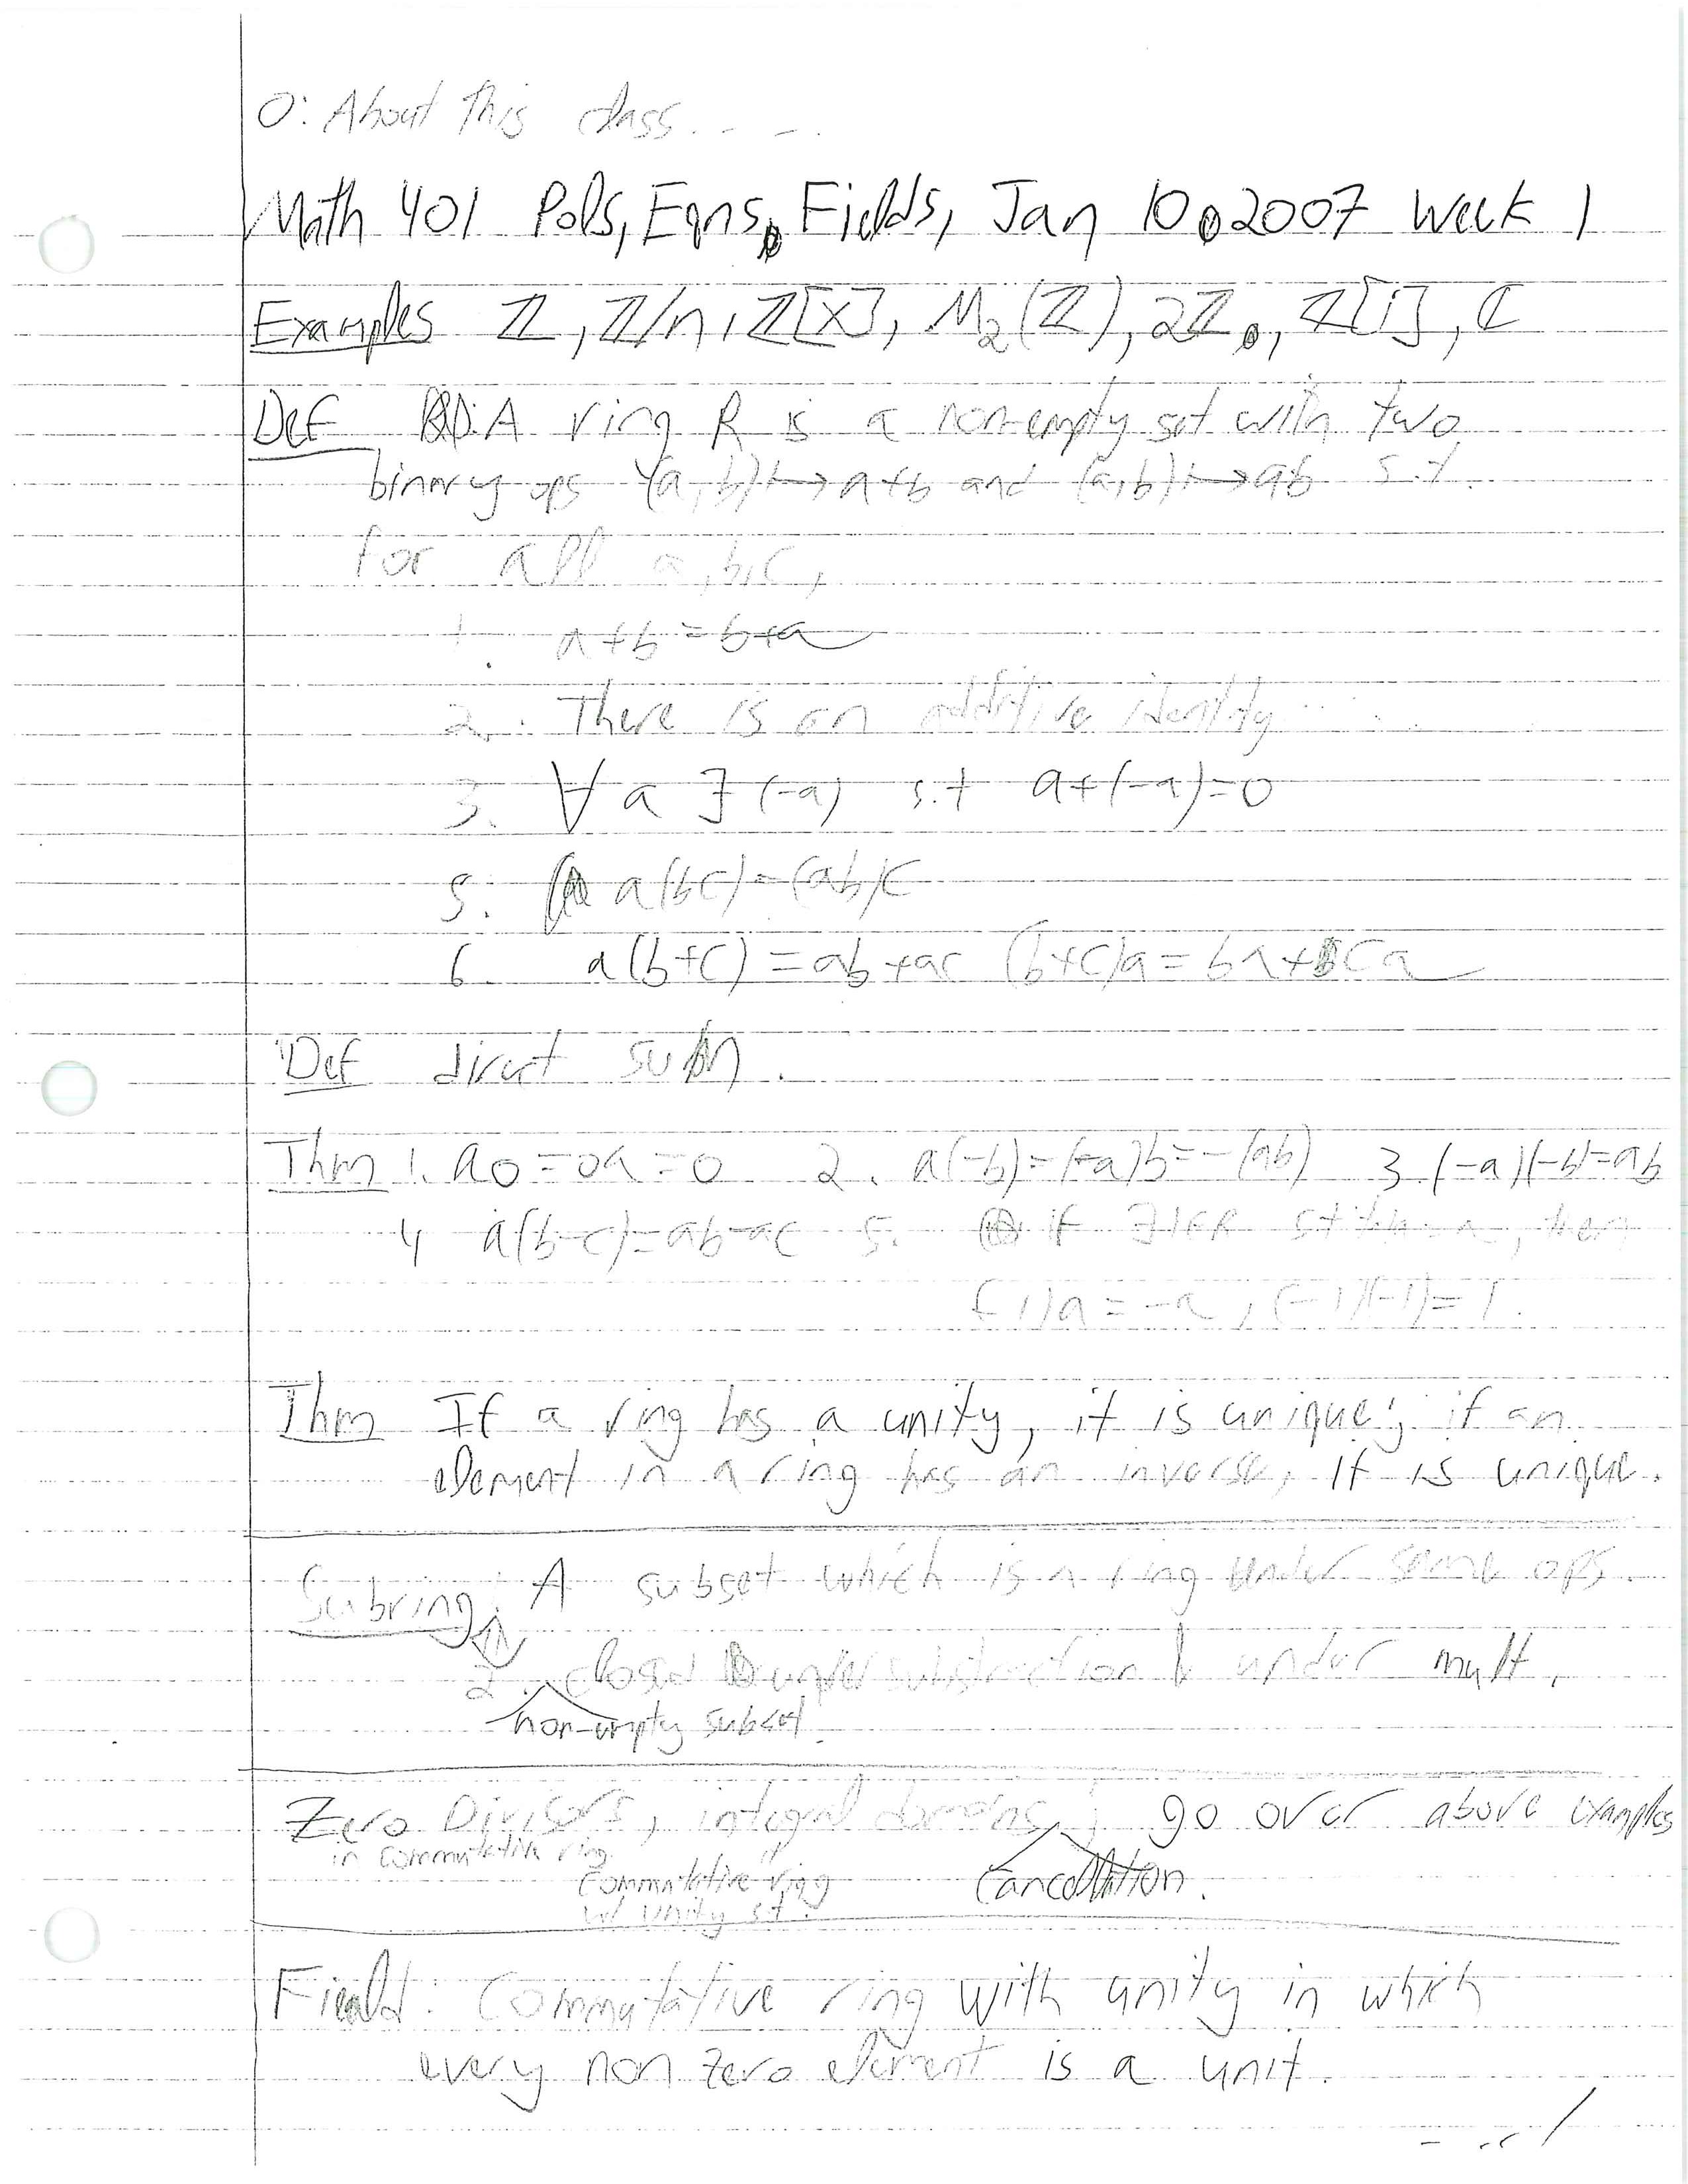 0: About this class.....
Math 401 Pols, Eqns, Fields, Jan 10, 2007 Week 1
Examples ℤ, ℤ/n, ℤ[x], M₂(ℤ), 2ℤ, ℤ[i], ℂ
Def A ring R is a non-empty set with two
binary ops (a,b)↦a+b and (a,b)↦ab s.t.
for all a,b,c,
1. a+b=b+a
2. There is an additive identity
3. ∀ a ∃ (-a) s.t a+(-a)=0
5. a(bc)=(ab)c
6. a(b+c)=ab+ac (b+c)a=ba+ca
Def direct sum.
Thm 1. a0=0a=0 2. a(-b)=(-a)b=-(ab) 3. (-a)(-b)=ab
4 a(b-c)=ab-ac 5. if ∃1∈R st, then
(-1)a=-a, (-1)(-1)=1.
Thm If a ring has a unity, it is unique; if an
element in a ring has an inverse, it is unique.
Subring: A subset which is a ring under same ops.
2. closed under subtraction & under mult.
non-empty subset
Zero Divisors, integral domains; go over above examples
in commutative ring.
commutative ring cancellation.
w/ unity st.
Field: Commutative ring with unity in which
every non zero element is a unit.